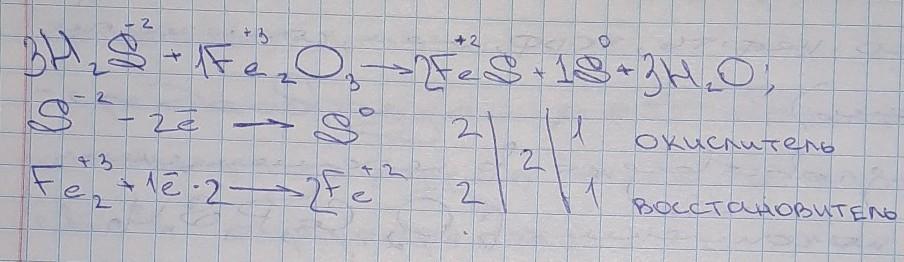 3H₂S⁻² + 1Fe₂⁺³O₃ → 2Fe⁺²S + 1S⁰ + 3H₂O;
S⁻² - 2ē → S⁰ 2 | 2 | 1 окислитель
Fe₂⁺³ + 1ē · 2 → 2Fe⁺² 2 | 1 восстановитель